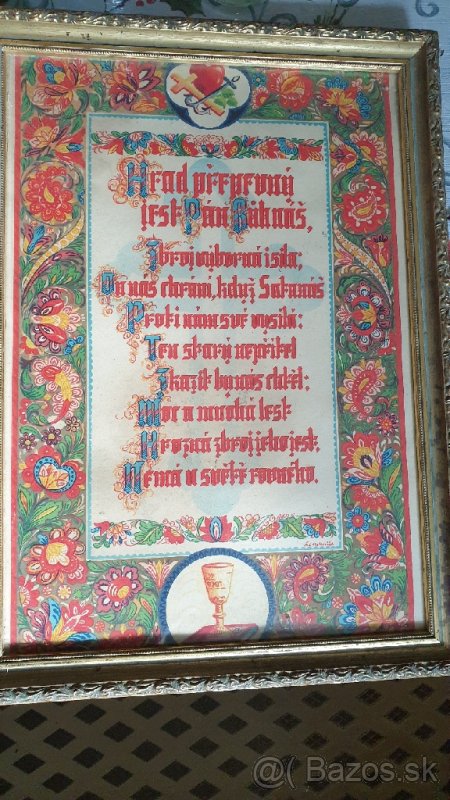 Hrad přepevný
jest Pán Bůh náš,
Zbroj výborná i síla;
On nás chrání, když Satanáš
Proti nám své vysílá:
Ten starý nepřítel
Zkazit by nás chtěl;
Moc a mnohá lest
Hrozná zbroj jeho jest,
Nemá v světě rovného.
@ Bazos.sk